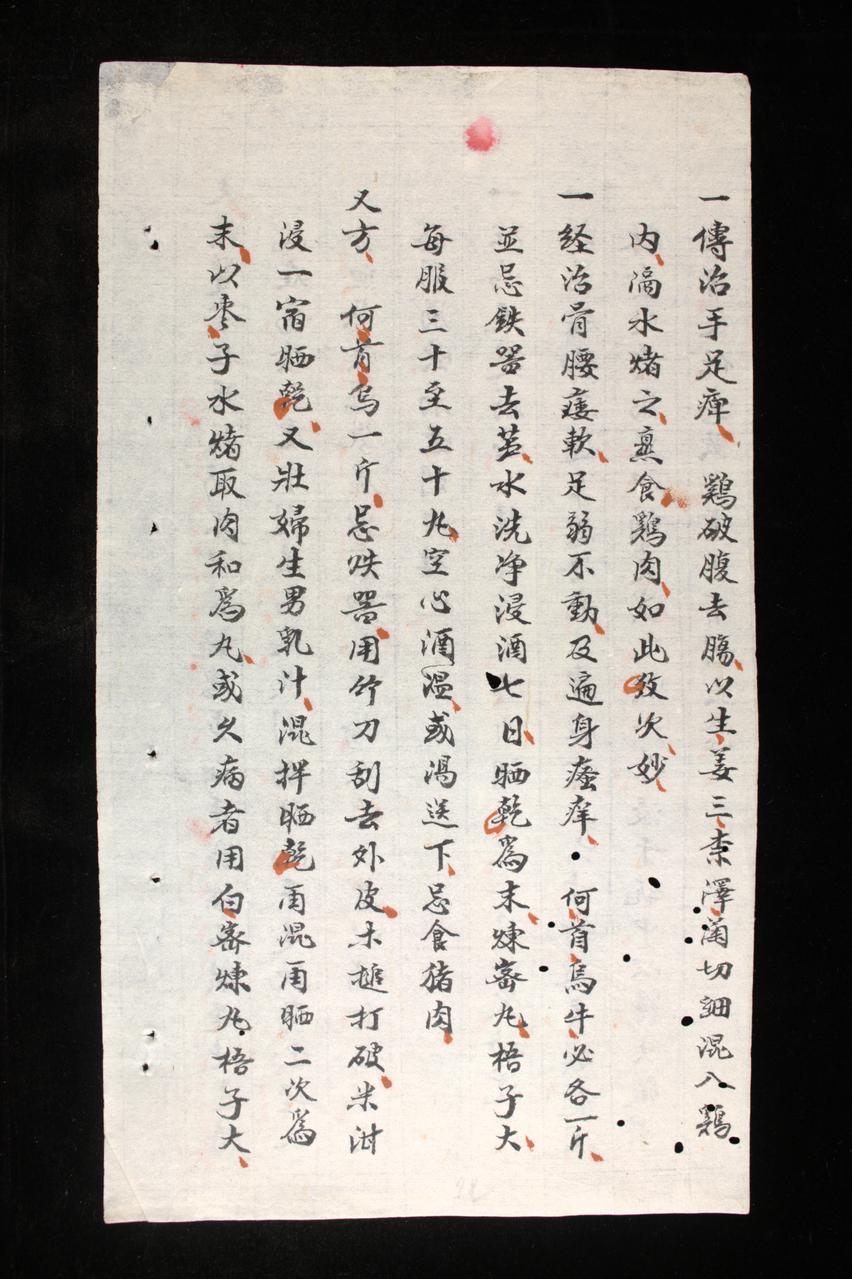 一傳治手足痺 鷄破腹去腸以生姜三柰澤蘭切細混入鷄
内隔水煑之熟食鷄肉如此数次妙
一経治骨腰痿軟足弱不動及遍身瘙痒 何首烏牛必各一斤
並忌鉄器去芦水洗净浸酒七日晒乾為末煉蜜丸梧子大
每服三十至五十丸空心酒温或湯送下忌食猪肉
又方 何首烏一斤忌鉄器用竹刀刮去外皮木槌打破米泔
浸一宿晒乾又壯婦生男乳汁混拌晒乾再混再晒二次為
末以枣子水煑取肉和為丸或久病者用白蜜煉丸梧子大